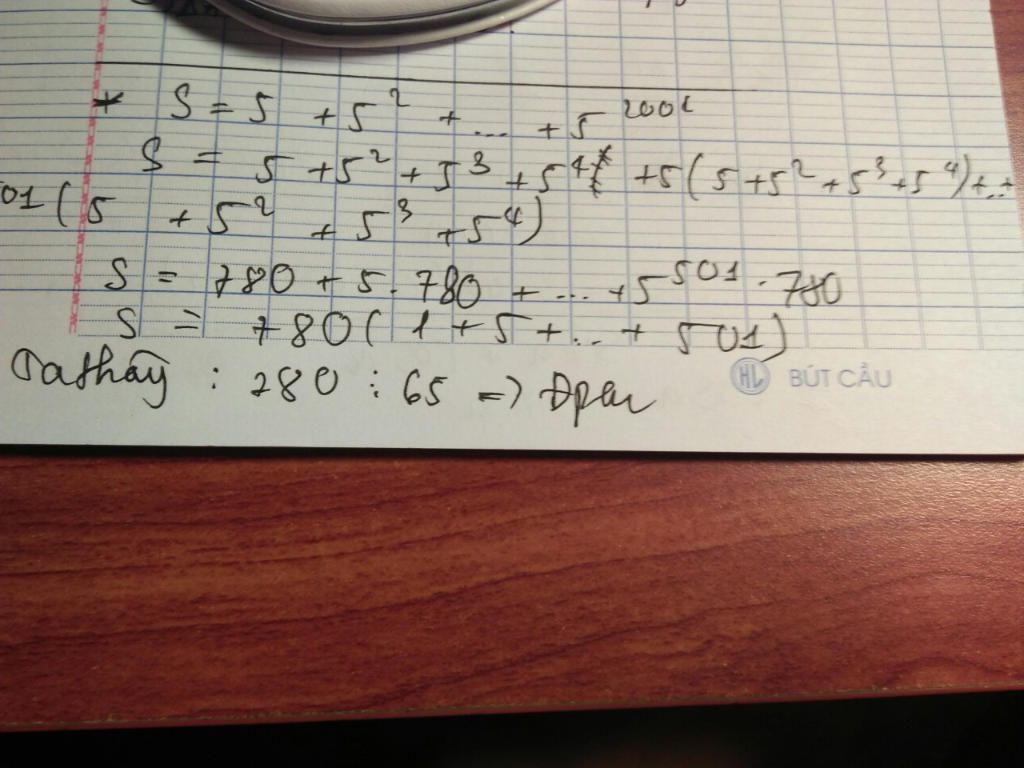 * S = 5 + 5² + ... + 5²⁰⁰⁴
S = 5 + 5² + 5³ + 5⁴ + 5(5 + 5² + 5³ + 5⁴) + ... +
01(5 + 5² + 5³ + 5⁴)
S = 780 + 5.780 + ... + 5⁵⁰¹.780
S = 780(1 + 5 + ... + 501)
Ta thấy : 780 : 65 => Đpcm
HL BÚT CẦU